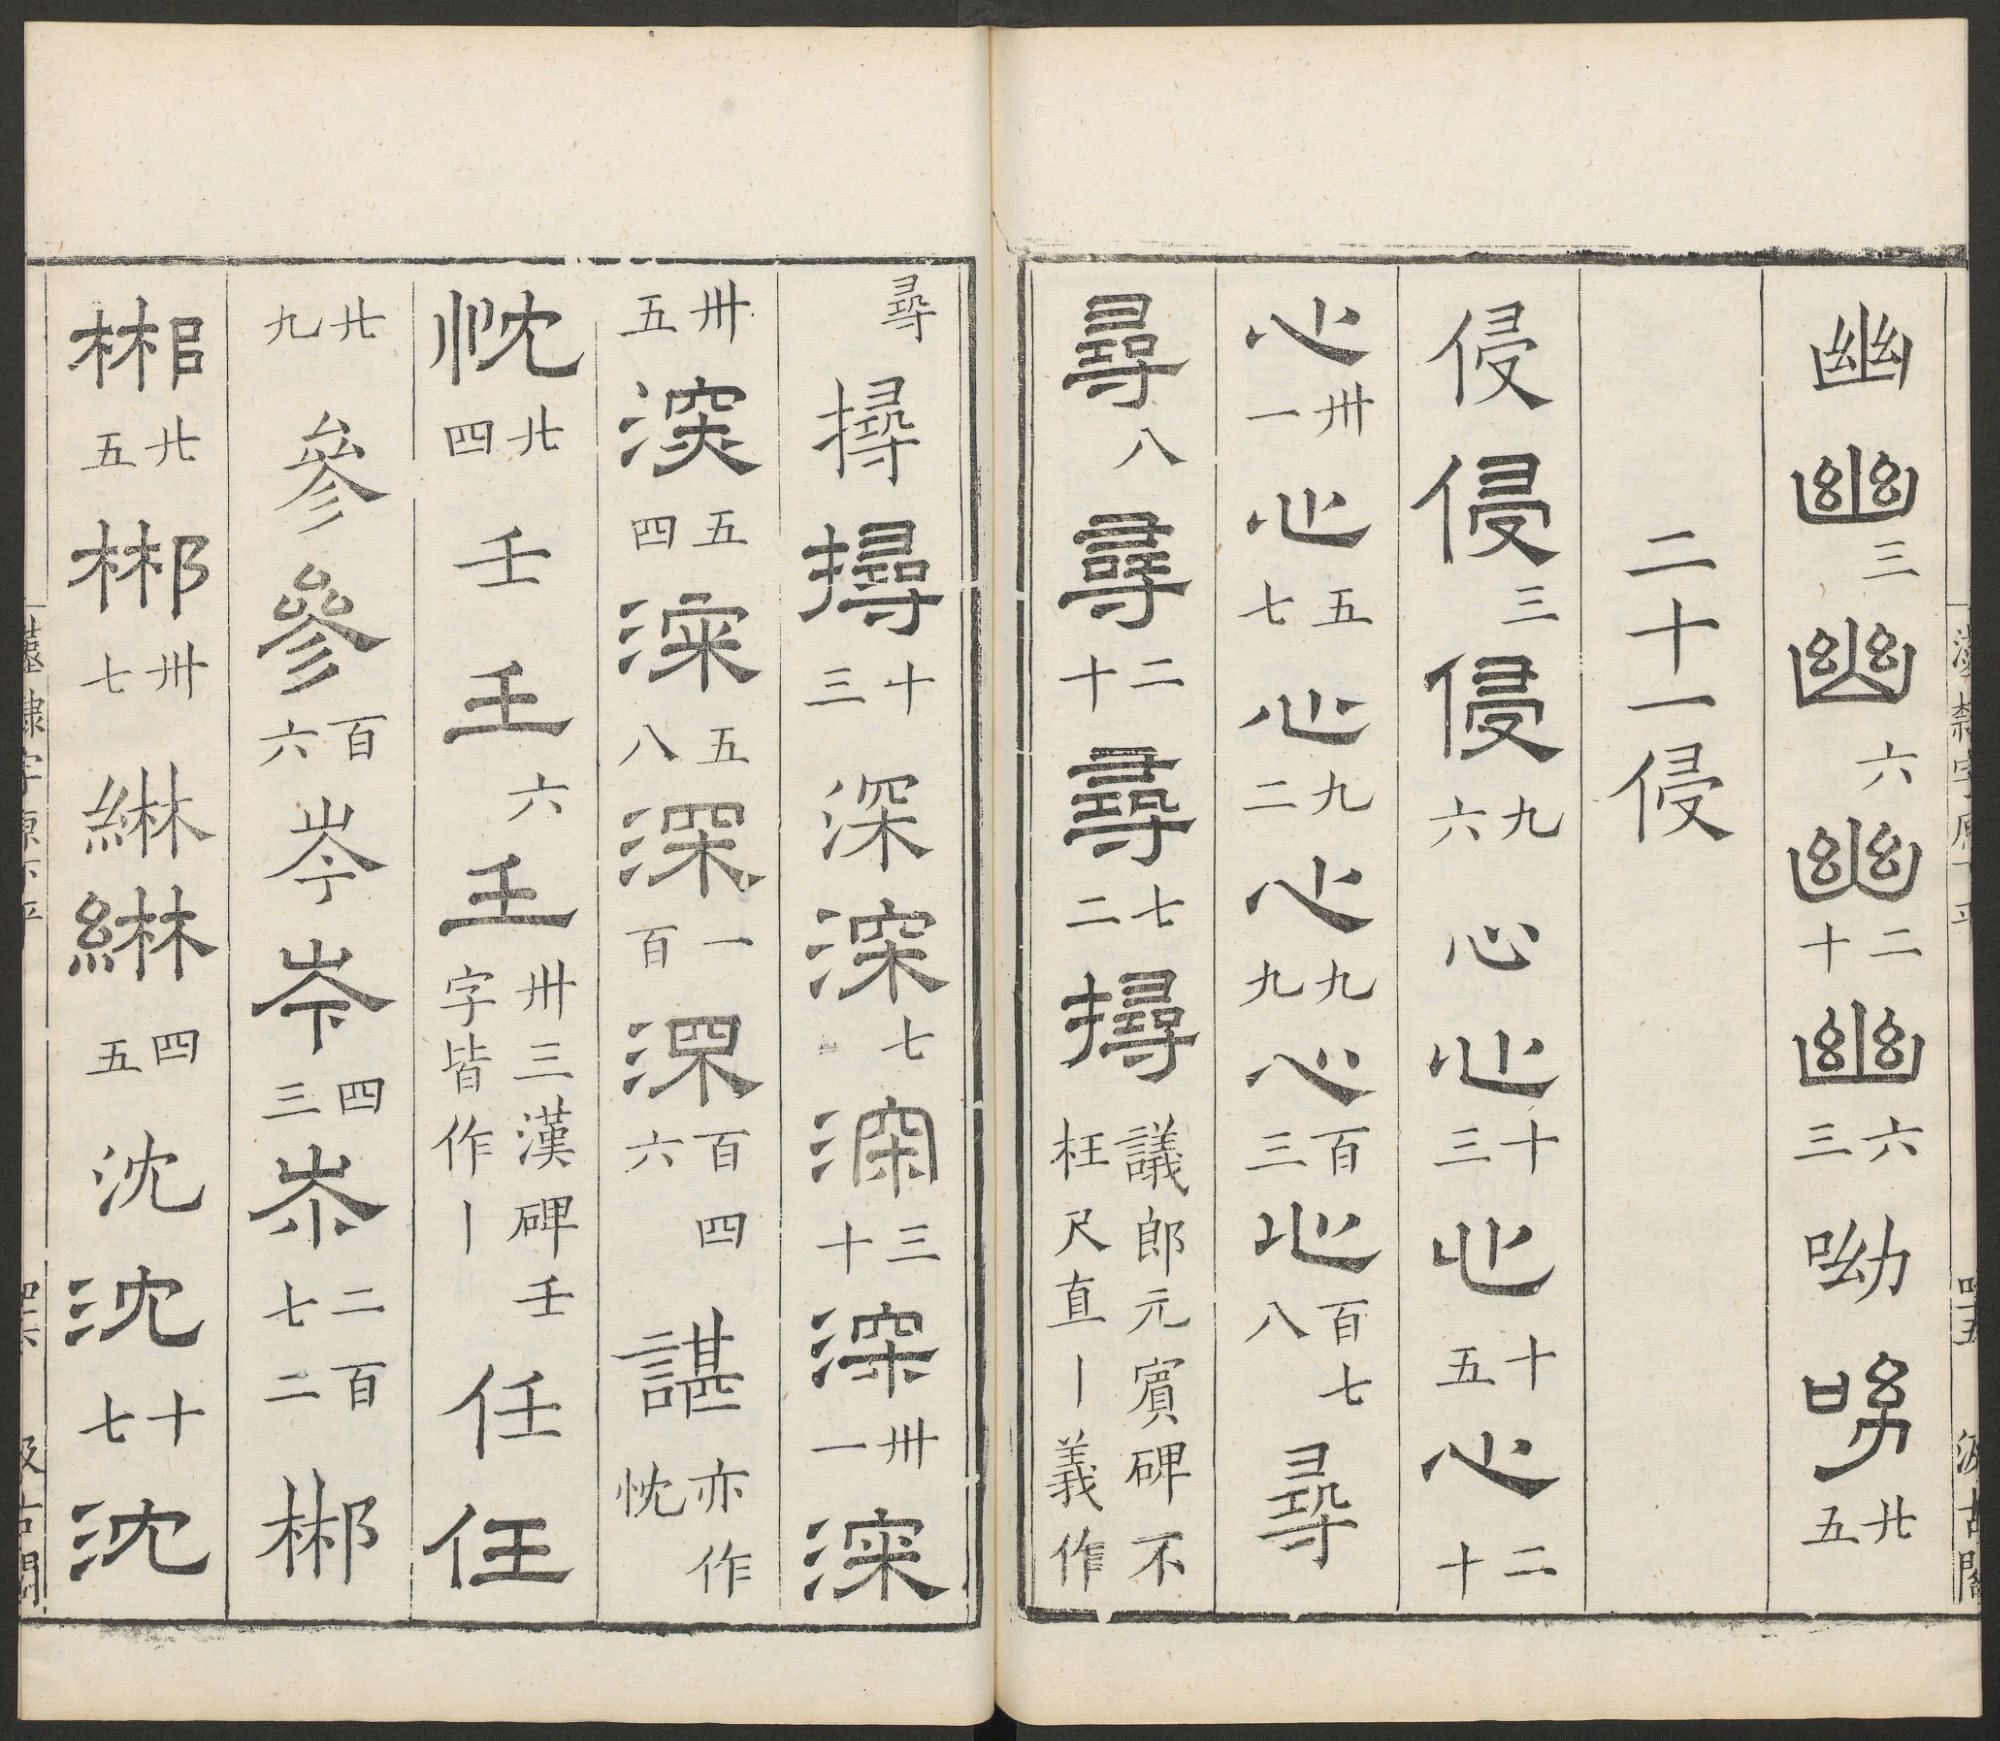 幽幽三幽六幽二十幽六三呦呦廿五
二十一侵
侵侵三侵九六心心十三心十五心二十
心卅一心五七心九二心九九心百三心百七八尋
尋八尋二十尋七二撏議郎元賓碑不枉尺直丨義作
尋撏撏十三深深七深三十深卅一深
卅五深五四深五八深一百深百四六諶亦作忱
忱廿四壬壬六壬卅三漢碑壬字皆作丨任任
廿九參參百六岑岑四三岑二百七二郴
郴廿五郴卅七綝綝四五沈沈十七沈
漢隸字原下平
四十五
汲古閣